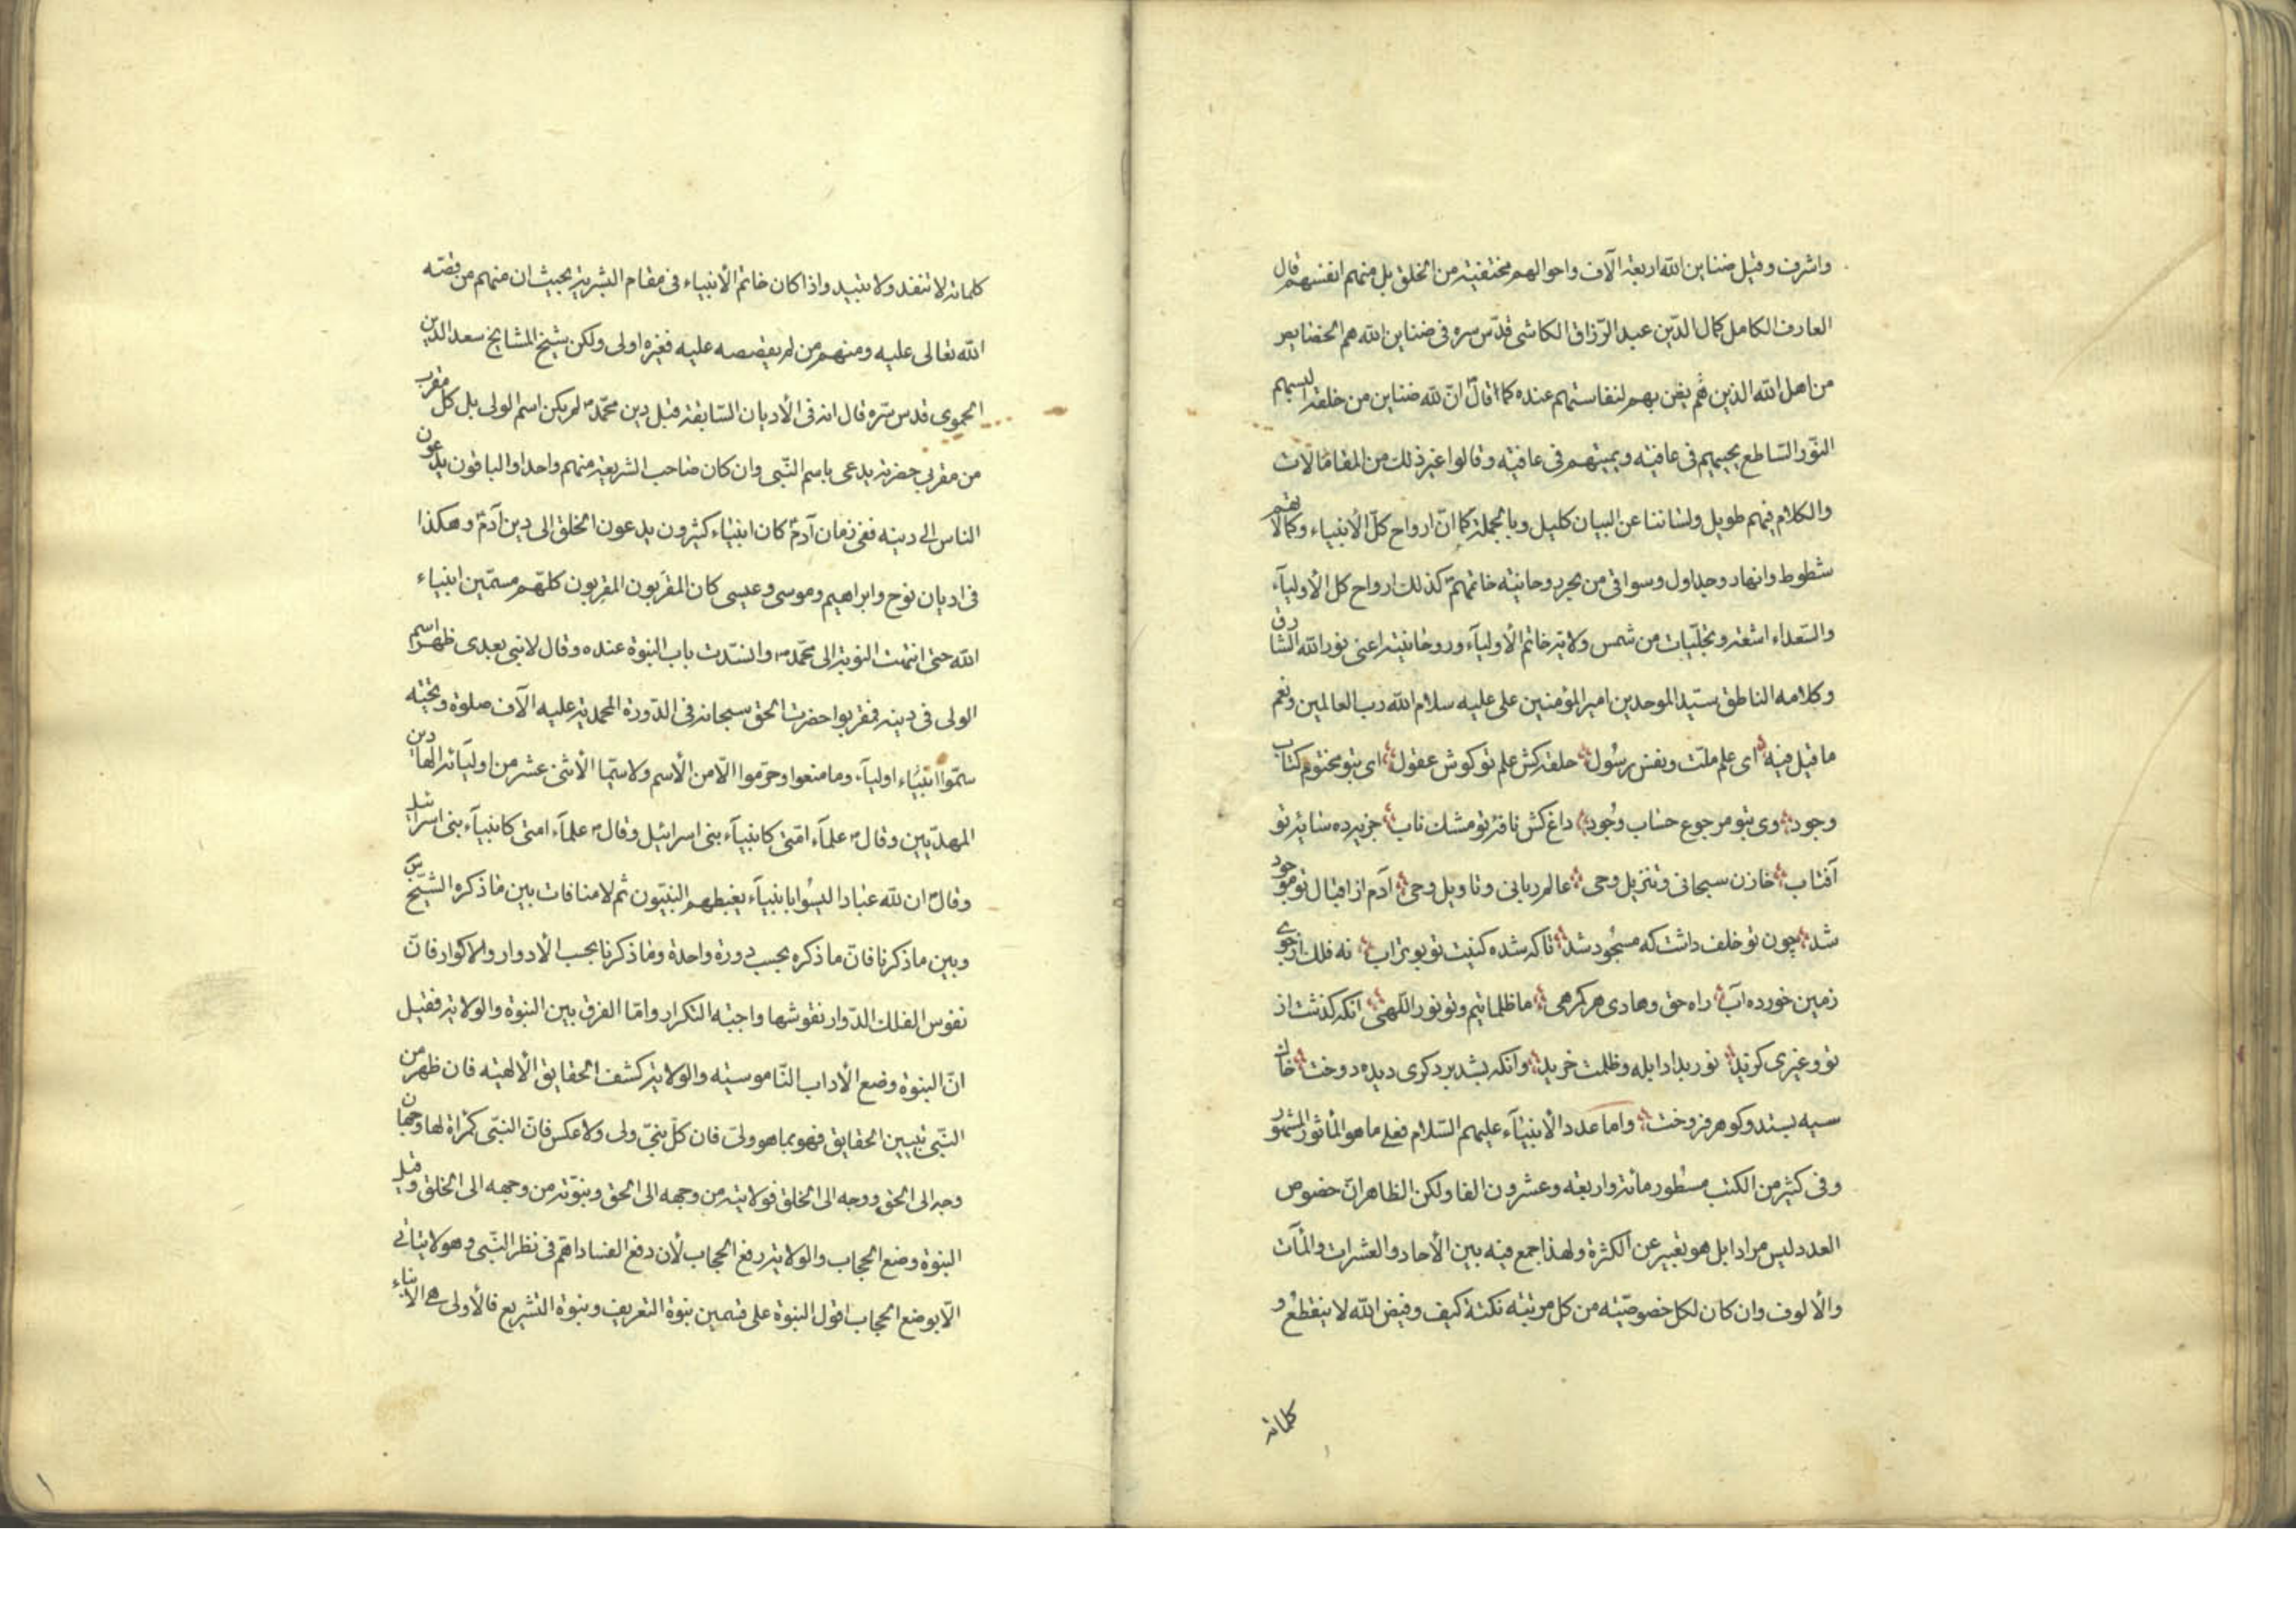 واشرف وقيل ضناين الله اربعة الآف واحوالهم مختفية من الخلق بل منهم انفسهم قال
العارف الكامل كمال الدّين عبد الرّزاق الكاشى قدّس سره فى ضناين الله هم الخصايص
من اهل الله الذين يضن بهم لنفاستهم عنده كما قال انّ لله ضناين من خلقه البسهم
النّور السّاطع يحييهم فى عافيته ويميتهم فى عافيته وقالوا غير ذلك من المقامالات
والكلام فيهم طويل ولساننا عن البيان كليل وبالجملة كما انّ ارواح كلّ الأنبياء وكمالاتهم
شطوط وانهار وجداول وسواقى من بحر روحانيته خاتمهم كذلك ارواح كل الأوليآء
والسّعداء اشعته وتجلّيات من شمس ولاية خاتم الأوليآء وروحانيته اعنى نور الله الشارق
وكلامه الناطق سيّد الموحدين امير المؤمنين على عليه سلام الله رب العالمين ونعم
ما قيل فيه اى علم ملّت ونفس رسول حلقه كش علم تو كوش عقول اى بتو مختوم كتاب
وجود وى بتو مرجوع حساب وجود داغ كش نافۀ تو مشك ناب جزيه ده سايۀ تو
آفتاب خازن سبحانى وتنزيل وحى عالم ربانى وتاويل وحى آدم از اقبال تو موجود
شد چون تو خلف داشت كه مسجود شد تا كه شده كنيت تو بوتراب نه فلك از جوى
زمين خورده آب راه حق وهادى هر كمرهى ما ظلماتيم وتو نور اللّهى آنكه كذشت از
تو وغيرى كزيد نور بداد ابله وظلمت خريد وانكه بشد بر دكرى ديده دوخت خاك
سيه بستد وكوهر فروخت واما عدد الأنبيآء عليهم السّلام فعلى ما هو المأثور المشهور
وفى كثير من الكتب مسطور مأة واربعة وعشرون الفا ولكن الظاهر انّ خصوص
العدد ليس مرادا بل هو تعبير عن الكثرة ولهذا جمع فيه بين الأحاد والعشرات والمأت
والألوف وان كان لكل خصوصيّته من كل مرتبته نكتة كيف وفيض الله لا ينقطع و
كلماته
كلماته لا تنفد ولا تبيد واذا كان خاتم الأنبياء فى مقام البشرية بحيث ان منهم من قصّه
الله تعالى عليه ومنهم من لم يقصصه عليه فغيره اولى ولكن شيخ المشايخ سعد الدين
الحموى قدس سّره قال انه فى الأديان السّابقة قبل دين محمّد ص لم يكن اسم الولى بل كل مقرب
من مقربى حضرته يدعى باسم النّبى وان كان صاحب الشريعة منهم واحدا والباقون يدعون
الناس الى دينه ففى زمان آدم كان انبياء كثيرون يدعون الخلق الى دين آدم وهكذا
فى اديان نوح وابراهيم وموسى وعيسى كان المقربون المقربون كلهم مسمّين انبياء
الله حتى انتهت النوبة الى محمّد ص وانسّدت باب النبوة عنده وقال لا نبى بعدى ظهر اسم
الولى فى دينه فمقربوا حضرت الحق سبحانه فى الدّورة المحمدية عليه الآف صلوة وتحيّته
سمّوا انبياء اوليآء وما منعوا وحرّموا الّا من الأسم ولا سيّما الأثنى عشر من اوليآئه الهادين
المهدّيين وقال ص علمآء امّتى كانبيآء بنى اسرائيل وقال ص علمآء امتى كانبيآء بنى اسرائيل
وقال ص ان لله عبادا ليسُوا بانبيآء يغبطهم النبيّون ثم لا منافات بين ما ذكره الشيخ س
وبين ما ذكرنا فانّ ما ذكره بحسب دورة واحدة وما ذكرنا بحسب الأدوار والاكوار فانّ
نفوس الفلك الدّوار نقوشها واجبته التكرار وامّا الفرق بين النبوة والولاية فقيل
انّ النبوة وضع الأداب النّاموسيّه والولاية كشف الحقايق الألهيّه فان ظهر من
النّبى تبيين الحقايق فهو بما هو ولىّ فان كلّ نبىّ ولى ولا عكس فانّ النبّى كمراة لها وجهان
وجه الى الحق ووجه الى الخلق فولايته من وجهه الى الحق ونبوّته من وجهه الى الخلق وقيل
النبوة وضع الحجاب والولاية رفع الحجاب لأن دفع الفساد اهّم فى نظر النّبى وهو لا يتاتى
الّا بوضع الحجاب اقول النبوة على قسمين نبوة التعريف ونبوة التشريع فالأولى هى الأنباء